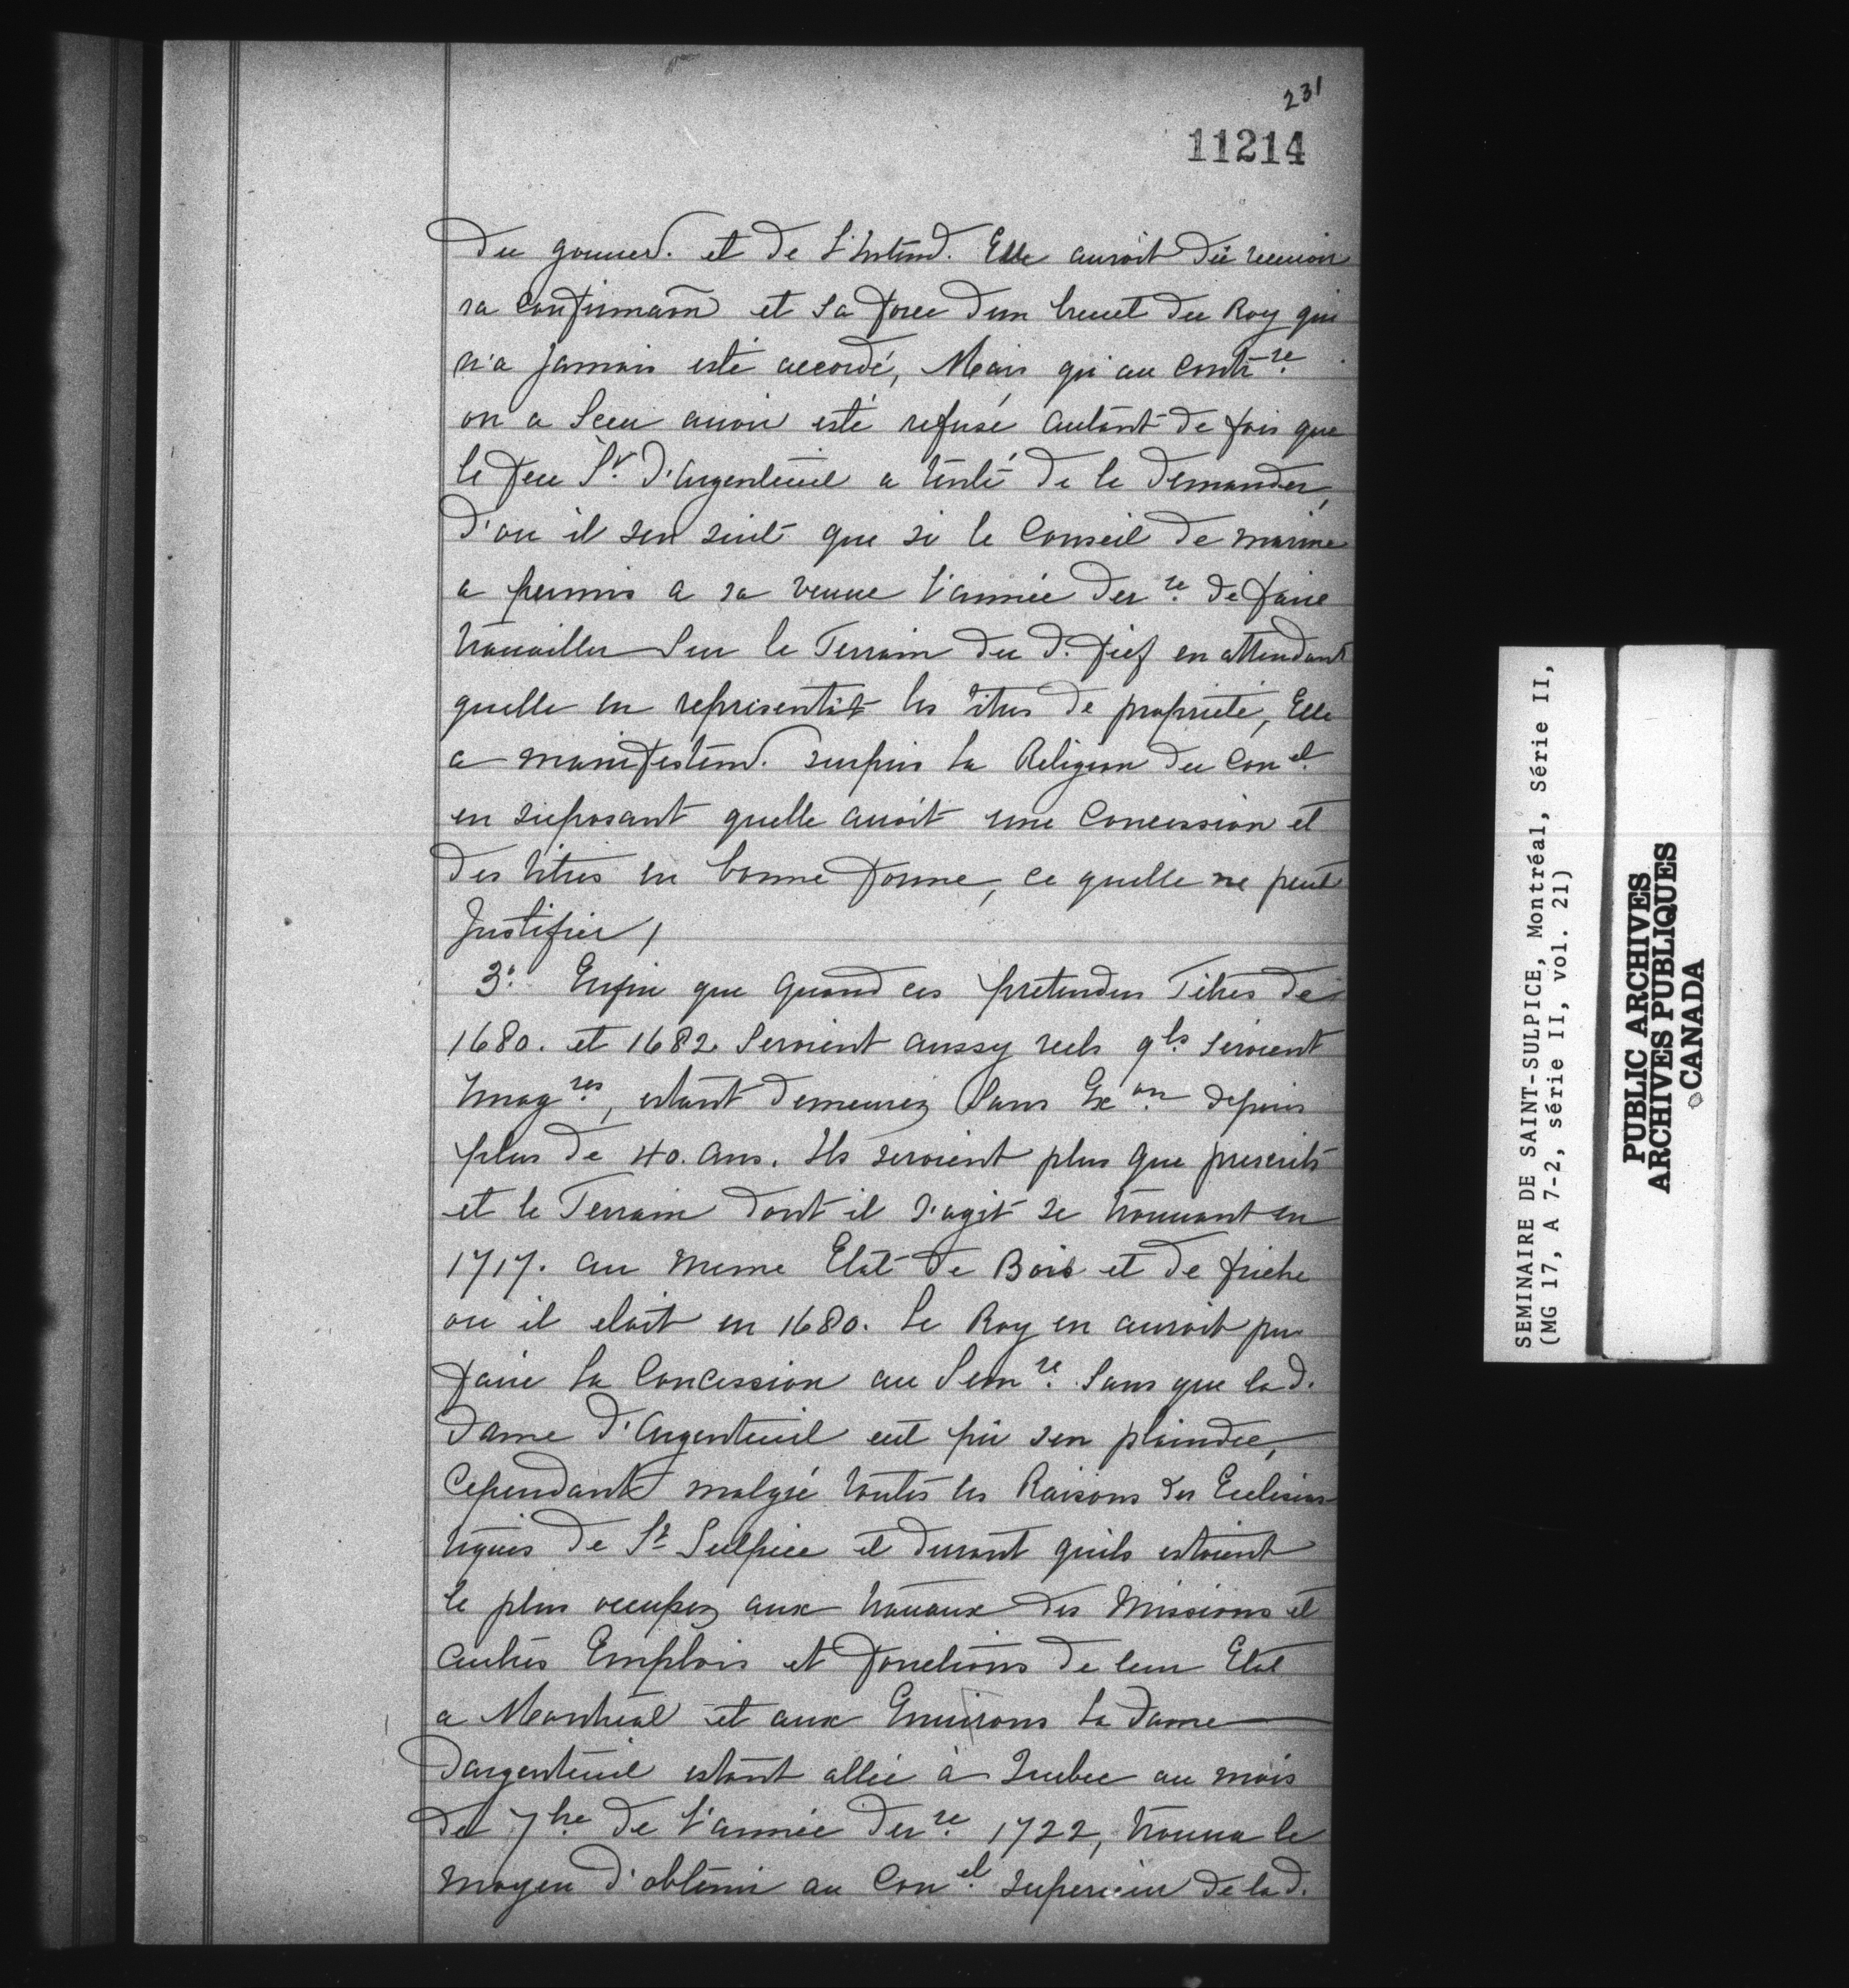 231
11214
Du gouver. et de L'Intend. Elle auroit dû receuoir
sa Confirmaõn et sa force d'un breuet du Roy qui
n'a jamais esté accordé, Mais qu'au Contre.
on a sceu auoir esté refusé autant de fois que
le feu Sr. D'argenteuil a tenté de le demander,
D'ou il sen suit que si le Conseil de marine
a permis a sa veuue L'année derre. de faire
trauailler sur le Terrain du d. fief en attendant
quelle en representât les titres de propriete, Elle
a manifestem. surpris la Religion du Conel.
en suposant quelle auoit une Concession et
des titres en bonne forme, ce quelle ne peut
Justifier /
3º. Enfin que quand ces pretendus Titres de
1680. et 1682 seroient aussy reels qls. seroient
Imagres, estant demeurez sans Exon. depuis
plus de 40. ans. Ils seroient plus que prescrits
et le Terrain dont il s'agit se trouuant en
1717. au meme Etat de Bois et de friche
ou il etoit en 1680. Le Roy en auroit pu
faire la Concession au Semre. sans que lad.
Dame D'argenteuil eut pû sen plaindre,
Cependant malgré toutes les Raisons des Ecclesias
tiques de St Sulpice et durant quils estoient
le plus occupez aux trauaux des Missions et
autres Emplois et fonctions de leur Etat
a Montreal et aux Enuirons La Dame
Dargenteuil estant allée à Quebec au mois
de 7bre de L'année derre. 1722, trouua le
moyen d'obtenir au Conel. superieur de lad.
SEMINAIRE DE SAINT-SULPICE, Montréal, Série II,
(MG 17, A 7-2, série II, vol. 21)
PUBLIC ARCHIVES
ARCHIVES PUBLIQUES
CANADA